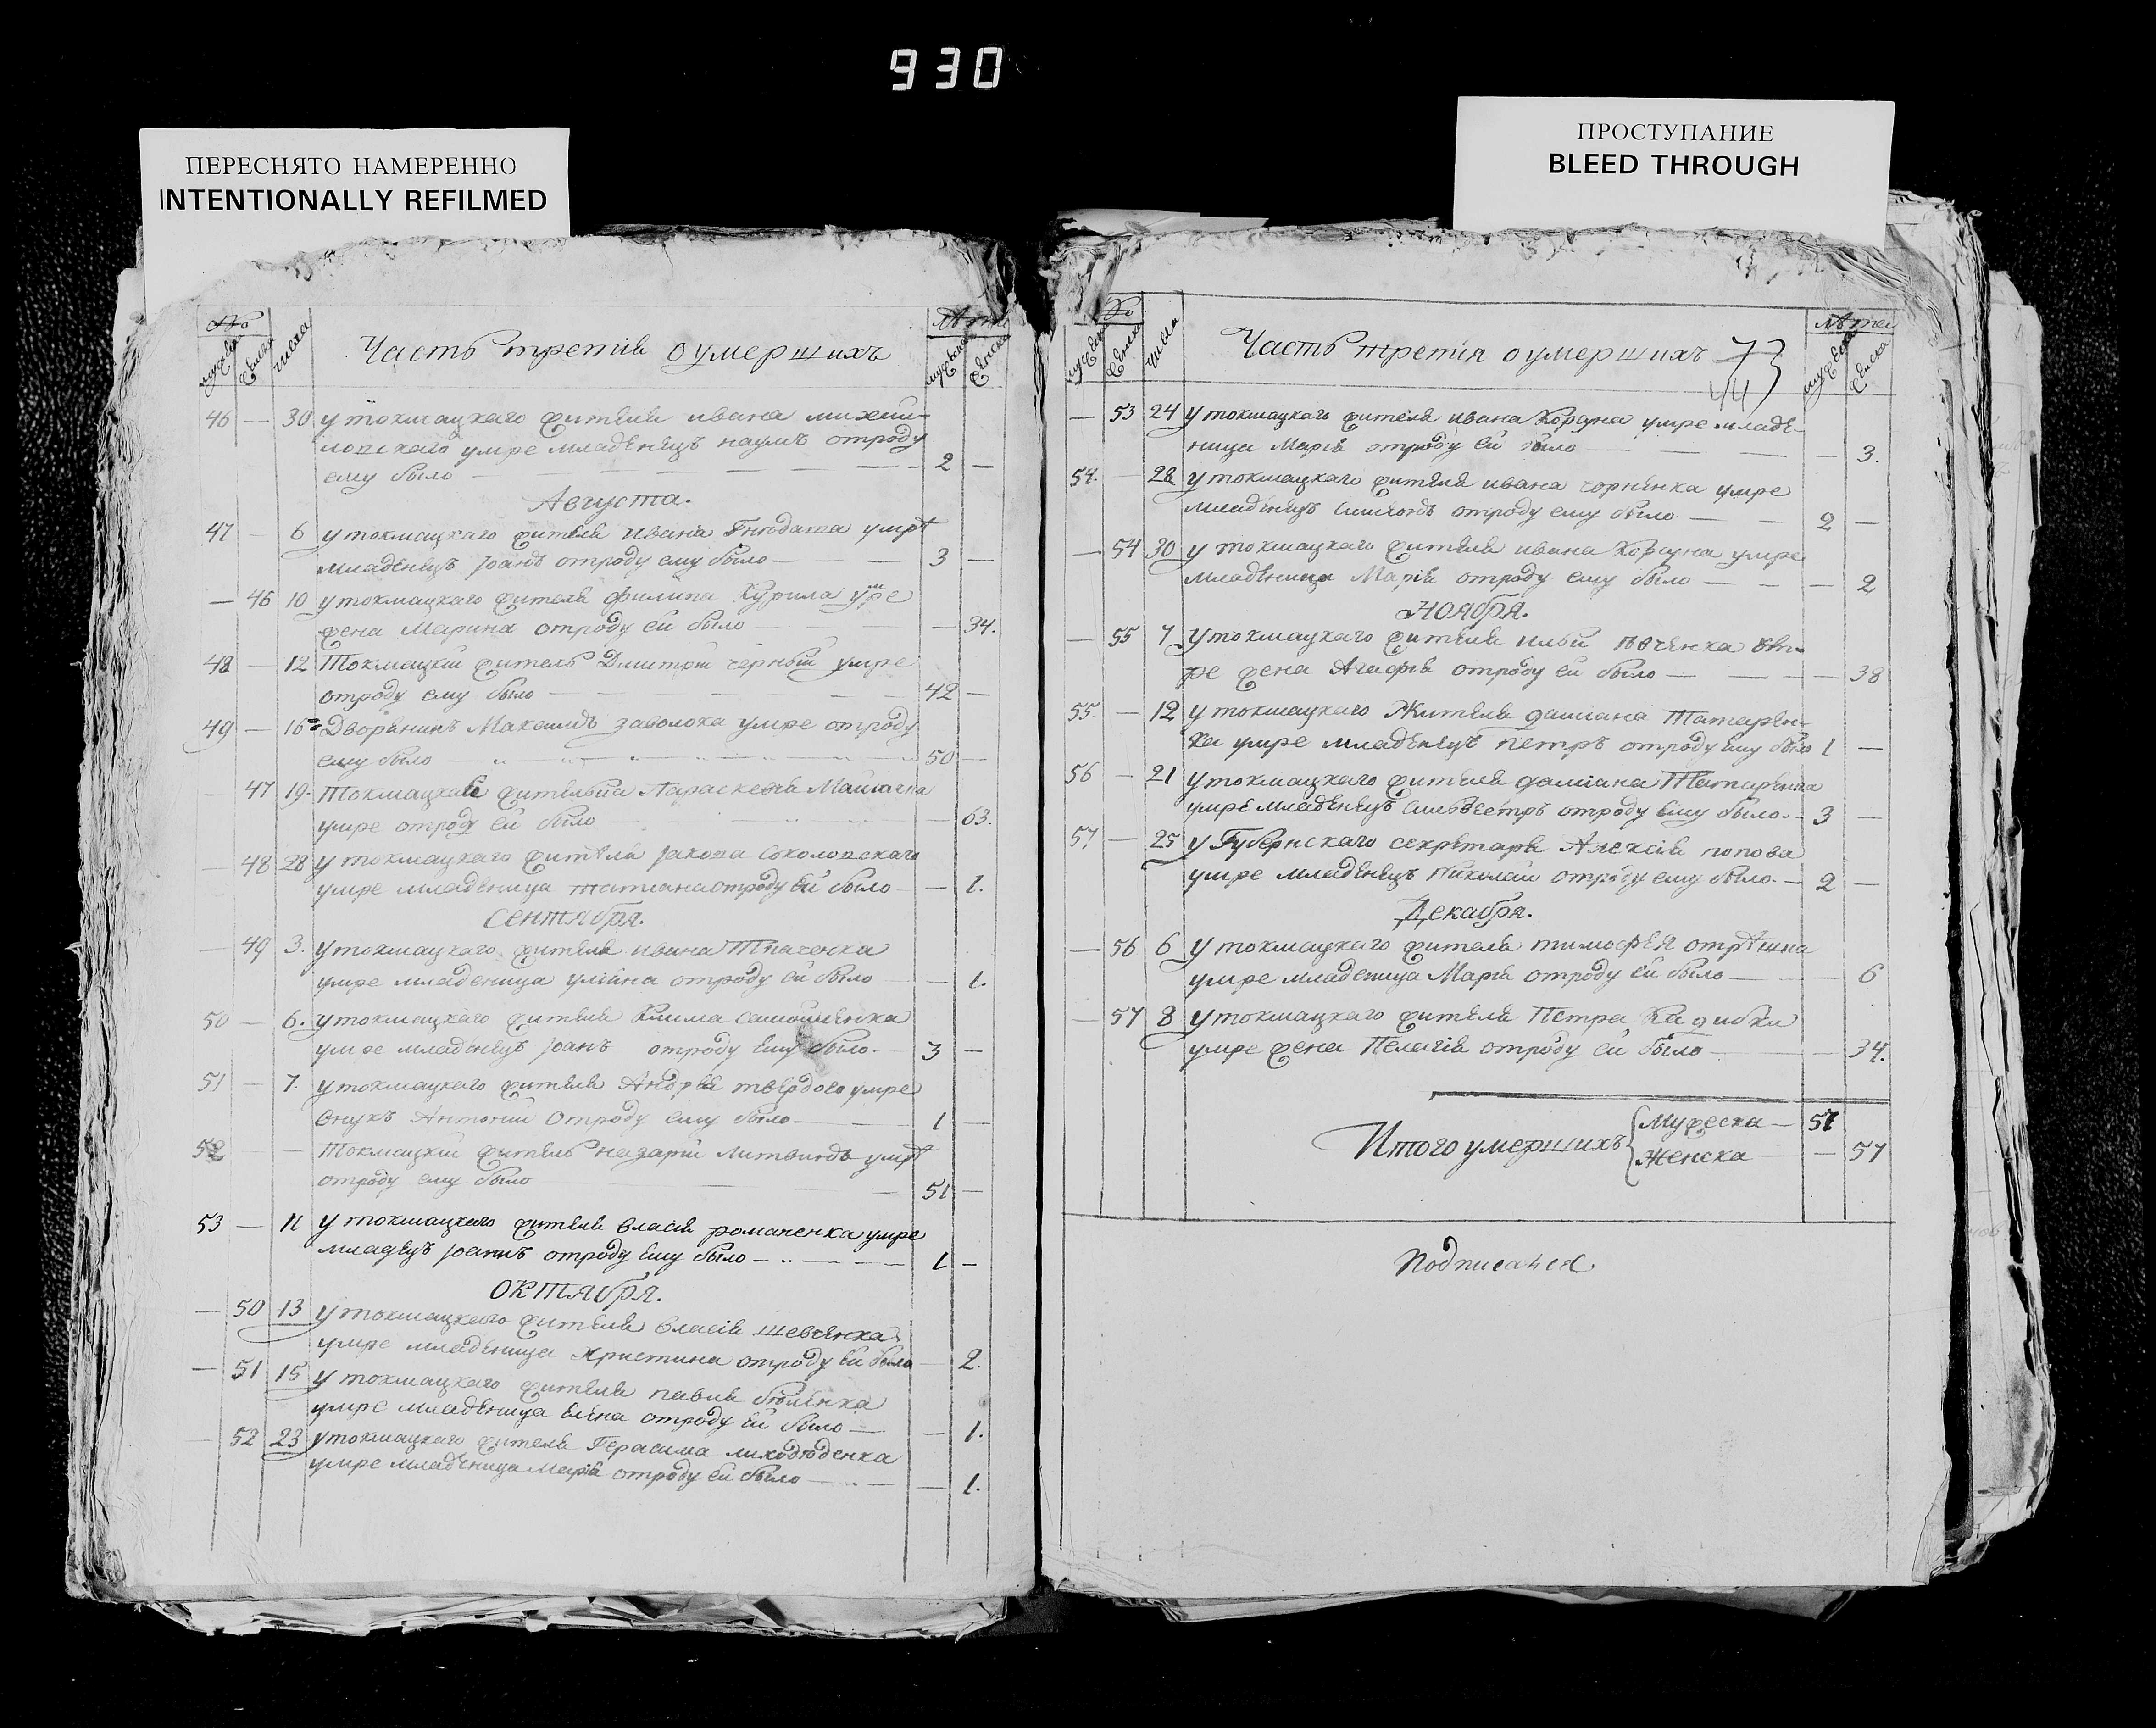 930
ПЕРЕСНЯТО НАМЕРЕННО
INTENTIONALLY REFILMED
ПРОСТУПАНИЕ
BLEED THROUGH
№ числа Часть третія о умершихъ лѣта
46 — 30 у токмацкаго жителя ивана михай-
ловскаго умре младенецъ наумъ отроду
ему было — 2 —
Августа.
47 — 6 у токмацкаго жителя ивана умрѣ
младенецъ Іоанъ отроду ему было — 3 —
— 46 10 у токмацкаго жителя филипа Курила умре
жена Марина отроду ей было — 34.
48 — 12 Токмацкій житель Дмитрій черный умре
отроду ему было — 42 —
49 — 16 Дворянинъ заволока умре отроду
ему было 50 —
— 47 19. Токмацкая Параскевія
умре отроду ей было — 63.
— 48 28 у токмацкаго жителя Іакова Соколовскаго
умре младеница татиана отроду ей было — 1.
Сентября.
— 49 3. у токмацкаго жителя ивана Ткаченка
умре младеница уліяна отроду ей было — 1.
50 — 6. у токмацкаго жителя Клима Самойленка
умре младенецъ Іоанъ отроду ему было — 3 —
51 — 7. у токмацкаго жителя Андрея твердого умре
внукъ Антоній отроду ему было — 1 —
52 — Токмацкій житель назарій литвинъ умрѣ
отроду ему было — 51 —
53 — 11 у токмацкаго жителя власія романенка умре
младецъ Іоанъ отроду ему было — 1 —
Октября.
— 50 13 у токмацкаго жителя власія шевченка
умре младеница Христина отроду ей было — 2.
— 51 15 у токмацкаго жителя павла бѣленка
умре младеница Елена отроду ей было — 1.
— 52 23 у токмацкаго жителя Герасима
умре младеница Марія отроду ей было — 1.
№ числа Часть третія о умершихъ 73 лѣта
44
— 53 24 у токмацкаго жителя ивана Корсуна умре младе-
ница Марія отроду ей было — 3.
54. — 28 у токмацкаго жителя ивана чорненка умре
младенецъ Симеонъ отроду ему было — 2 —
— 54 30 у токмацкаго жителя ивана Корсуна умре
младеница Марія отроду ему было — 2
Ноября.
— 55 7 у токмацкаго жителя иліи
ре жена Агафія отроду ей было — 38
55. — 12 у токмацкаго Жителя даміана Татарен-
ка умре младенецъ петръ отроду ему было 1 —
56 — 21 у токмацкаго жителя даміана Татаренка
умре младенецъ Силвестръ отроду ему было — 3 —
57 — 25 у Губернскаго секретаря Алексія попова
умре младенецъ Николай отроду ему было — 2 —
Декабря.
— 56 6 у токмацкаго жителя тимофея отрѣшка
умре младеница Марія отроду ей было — 6
— 57 8 у токмацкаго жителя Петра
умре жена Пелагія отроду ей было — 34.
Итого умершихъ Мужеска — 57
Женска — 57
Подписался